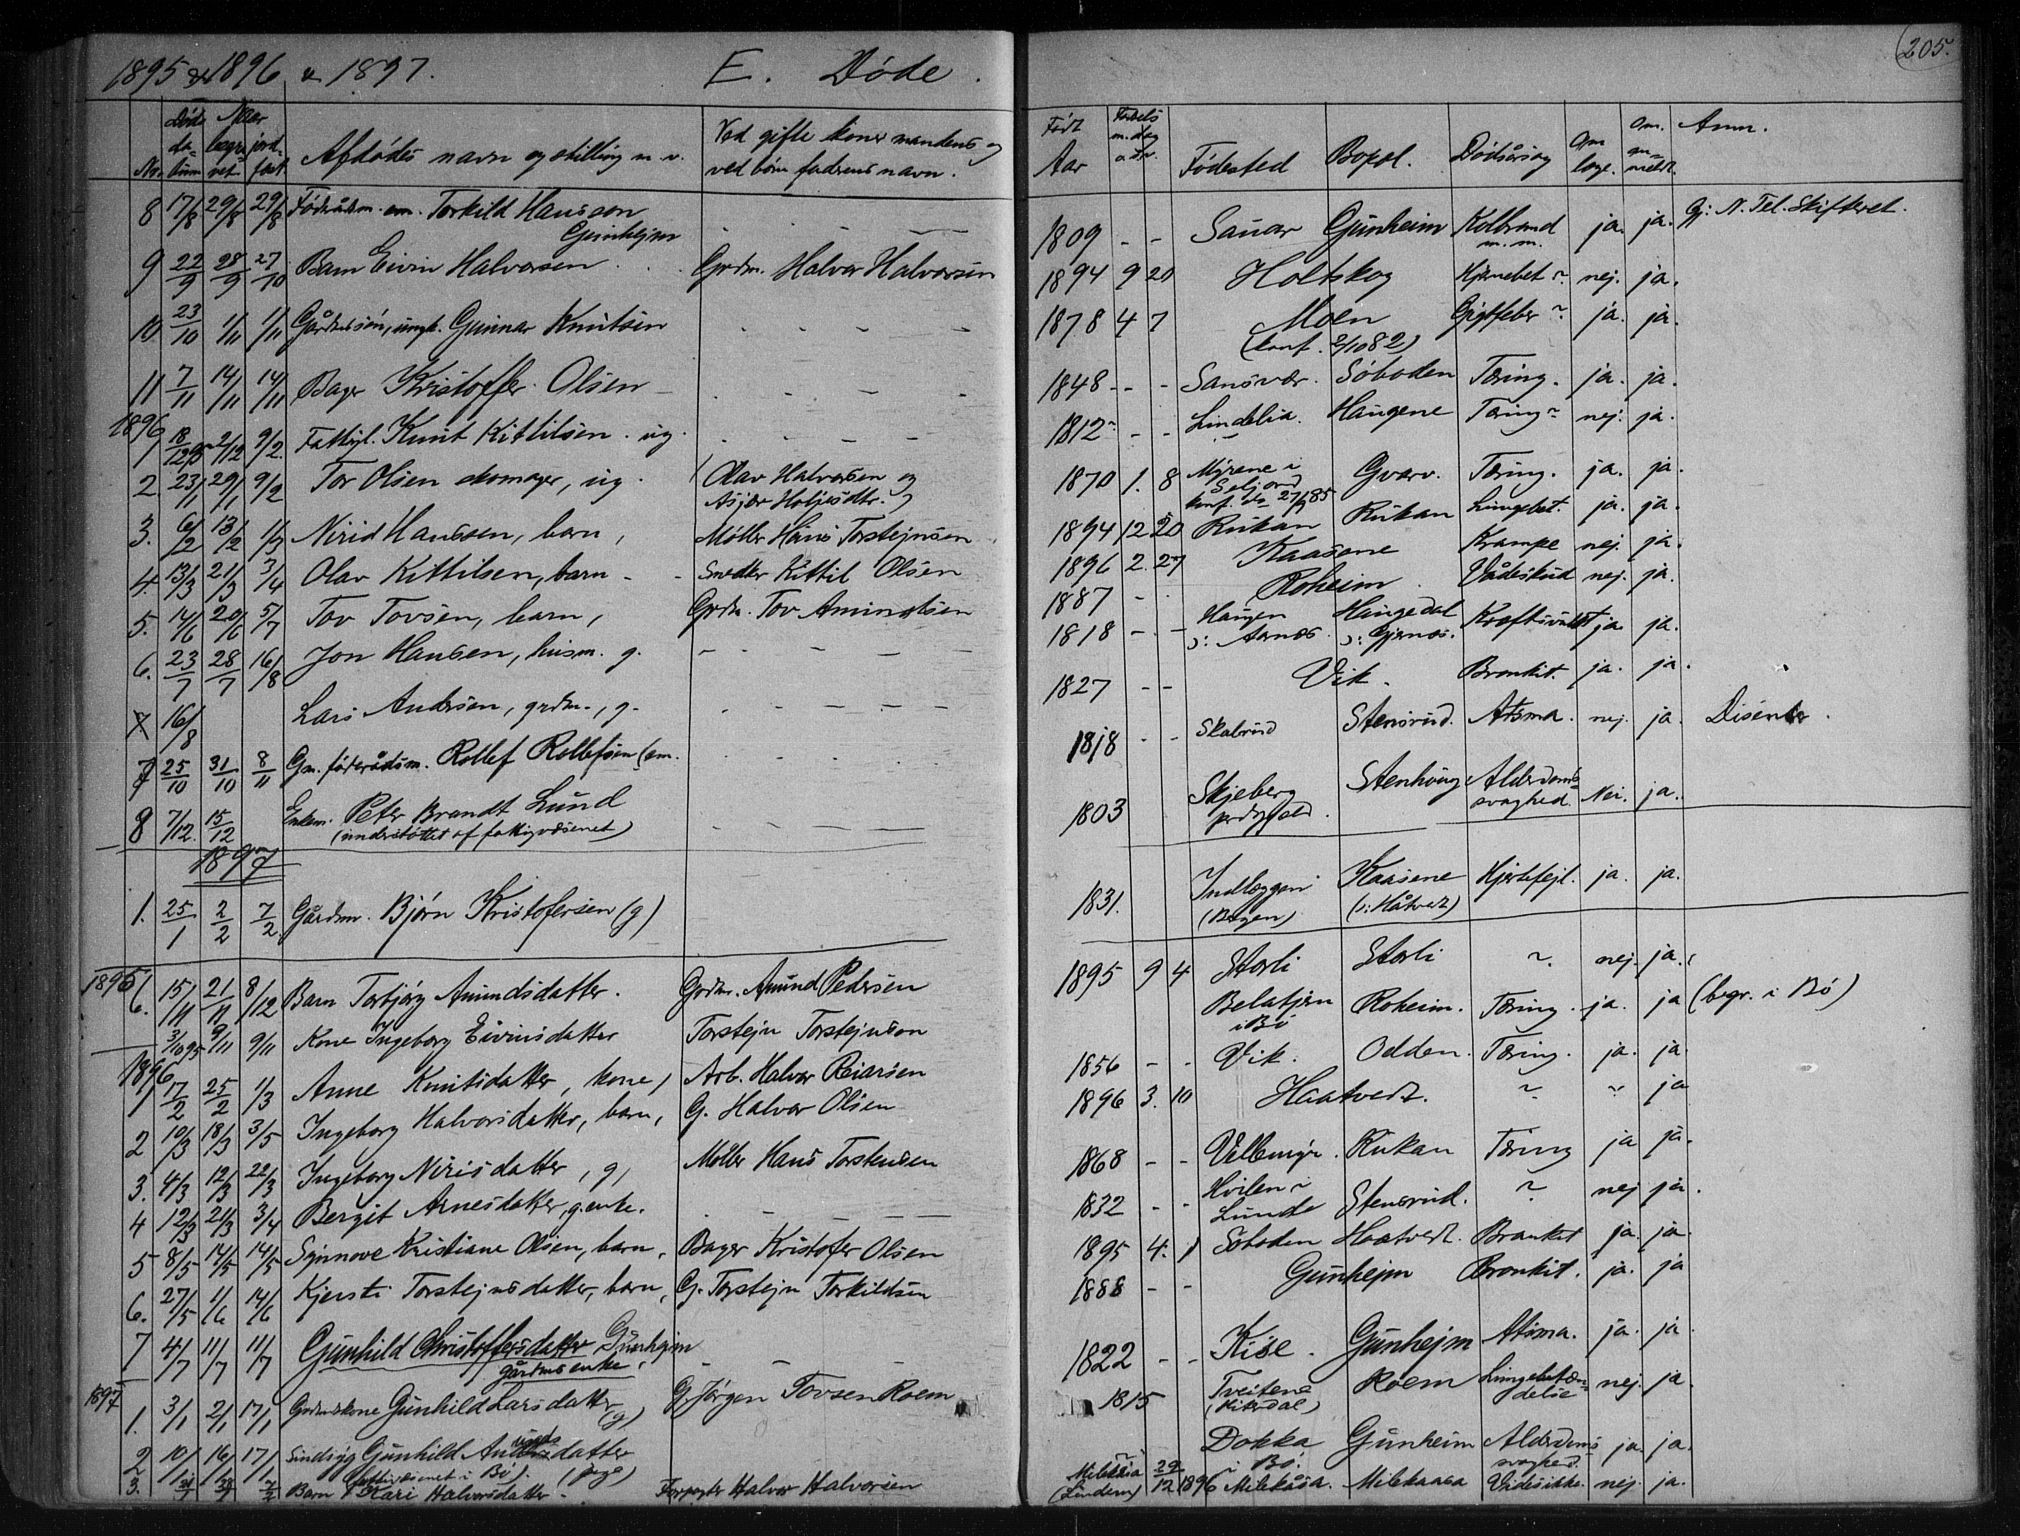 1895 1896 1897.
E. Døde.
No. Døds datum Naar begravet jordfæst Afdødes navn og stilling m. v. Ved gifte koner mandens og ved børn faderens navn.
8 17/8 29/8 29/8 Føderådsm. em. Torkild Hanssen
Gunhejm
9 22/9 28/9 27/10 Barn Eivin Halvorsen Grdm. Halvor Halvorsen
10. 23/10 1/11 1/11 Gårdmssøn, ungk. Gunnar Knutsen
11 7/11 14/11 14/11 Bager Kristoffer Olsen
1896
1 18/12 95 2/12 9/2. Fattigl. Knut Kittilsen. ug.
2. 23/1 29/1 9/2 Tor Olsen skomager, ug. Olav Halvorsen og
Asjer Holjesdtr.
3. 6/2 13/2 1/3 Nirid Hanssen, barn, Møller Hans Torstejnsen
4. 13/3 21/3 3/4 Olav Kittilsen, barn - Smed Kittil Olsen
5. 14/6 20/6 5/7 Tov Tovsen, barn, Grdm. Tov Amundsen
6. 23/7 28/7 16/8 Jon Hansen, husm. g.
7 16/8 Lars Andersen, grdm., g.
7 25/10 31/10 8/11 Gm. føderådsm. Rollef Rollefsen (em.
8 7/12. 15/12 Enkem. Peter Brandt Lund
(understøttet af fattigvæsenet)
1897
1. 25/1 2/2 7/2. Gårdm. Bjørn Kristofersen (g)
1895
6. 15/11 21/11 8/12 Barn Torbjørg Amundsdatter. Grdm. Amund Pedersen
3/10 95 9/11 9/11 Kone Ingeborg Eivinsdatter Torstejn Torstejnson
1896
1 17/2 25/2 1/3 Anne Knutsdatter, kone, Arb. Halvor Reiarsen
2 10/3 18/3 3/5 Ingeborg Halvorsdatter, barn, G. Halvor Olsen
3. 4/3 12/3 22/3 Ingeborg Nirisdatter, g, Møller Hans Torstensen
4 12/3 21/3 3/4 Bergit Arnesdatter, g. enke.
5 8/5 14/5 14/5 Synnove Kristiane Olsen, barn, Bager Kristofer Olsen
6. 27/5 1/6 14/6 Kjersti Torstejnsdatter, barn, G. Torstejn Torkildsen
7 4/7 11/7 11/7 Gunhild Christoffersdatter Gunhejm
gårdms enke.
1897
1. 3/1 2/1 17/1 Grdmskone Gunhild Larsdatter (g) G. Jørgen Tovsen Roem
2 10/1 16/1 17/1 Sindsyg Gunhild datter
fattivæsenet i Bø). (pige)
3. Barn Kari Halvorsdatter. Forpagter Halvor Halvorsen
205.
Født Aar Fødsels m. dag Fødested Bopæl. Dødsårsag Om læge. Om anmeldt. Anm.
1809 - - Sauar Gunheim Kolbrand m. m. ja. ja. Gj: N. Tel. Skifteret.
1894 9 20 Holtskog Hjernebet ~. nej. ja.
1878 4 7 Moen Gigtfeber ~. ja. ja.
(konf. 2/10 82)
1848 - - Sansvær. Søboden Tæring. ja. ja.
1812 - - Lindelia. Haugene Tæring ~ nej. ja.
1870 1. 8 Myrene i Seljord Gvarv. Tæring. ja. ja.
1894 12 20 Rukan Rukan Lungebet. ja. ja.
1896 2. 27 Kaasene Krampe nej. ja.
1887 - Roheim. Vådeskud nej. ja.
1818 - - Haugen Haugedal Kræftsvulst ja. ja.
ɔ: Aarnes. ɔ: Gjernes.
1827 - - Vik. Bronkit. ja. ja.
1818 - - Skabrud Stensrud. Atsma. nej. ja. Disenter.
1803 Skjeberg prdgjæld. Stenhaug Alderdoms svaghed. Nei. ja.
1831. Indlæggen (Bergen) Kaasene (ɔ: Håtvet) Hjertefejl. ja. ja.
1895 9 4 Storli Storli ~. nej. ja.
Belatjern i Bø Roheim. Tæring. ja. ja (begr. i Bø)
1856 - - Vik. Odden. Tæring. ja. ja.
1896 3. 10 Haatvedt. ~ ~ ja
1868 - - Vellemyr. Rukan Tæring ja ja.
1832 - - Hvilen ~ Lunde Stensrud. ~ nej ja.
1895 4. 1 Soboden Haatvedt. Bronkit ja. ja.
1888 - - Gunhejm Bronkit. ja. ja
1822 - - Kise. Gunhejm Atsma. ja. ja
1815 Tveitene (Hitterdal) Roem Lungebetændelse nej. ja.
Dokka i Bø. Gunheim Alderdoms svaghed. ja. ja.
Milekåsa (Lindem) 29/12 1896 Milekåsa. Milekaasa Vides ikke. nej. ja.